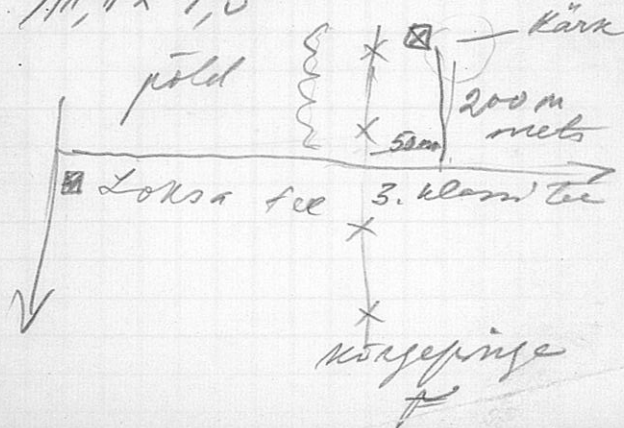 Kärk
põld
200 m
mets
50 m
Loksa tee 3. klassi tee
kõrgepinge